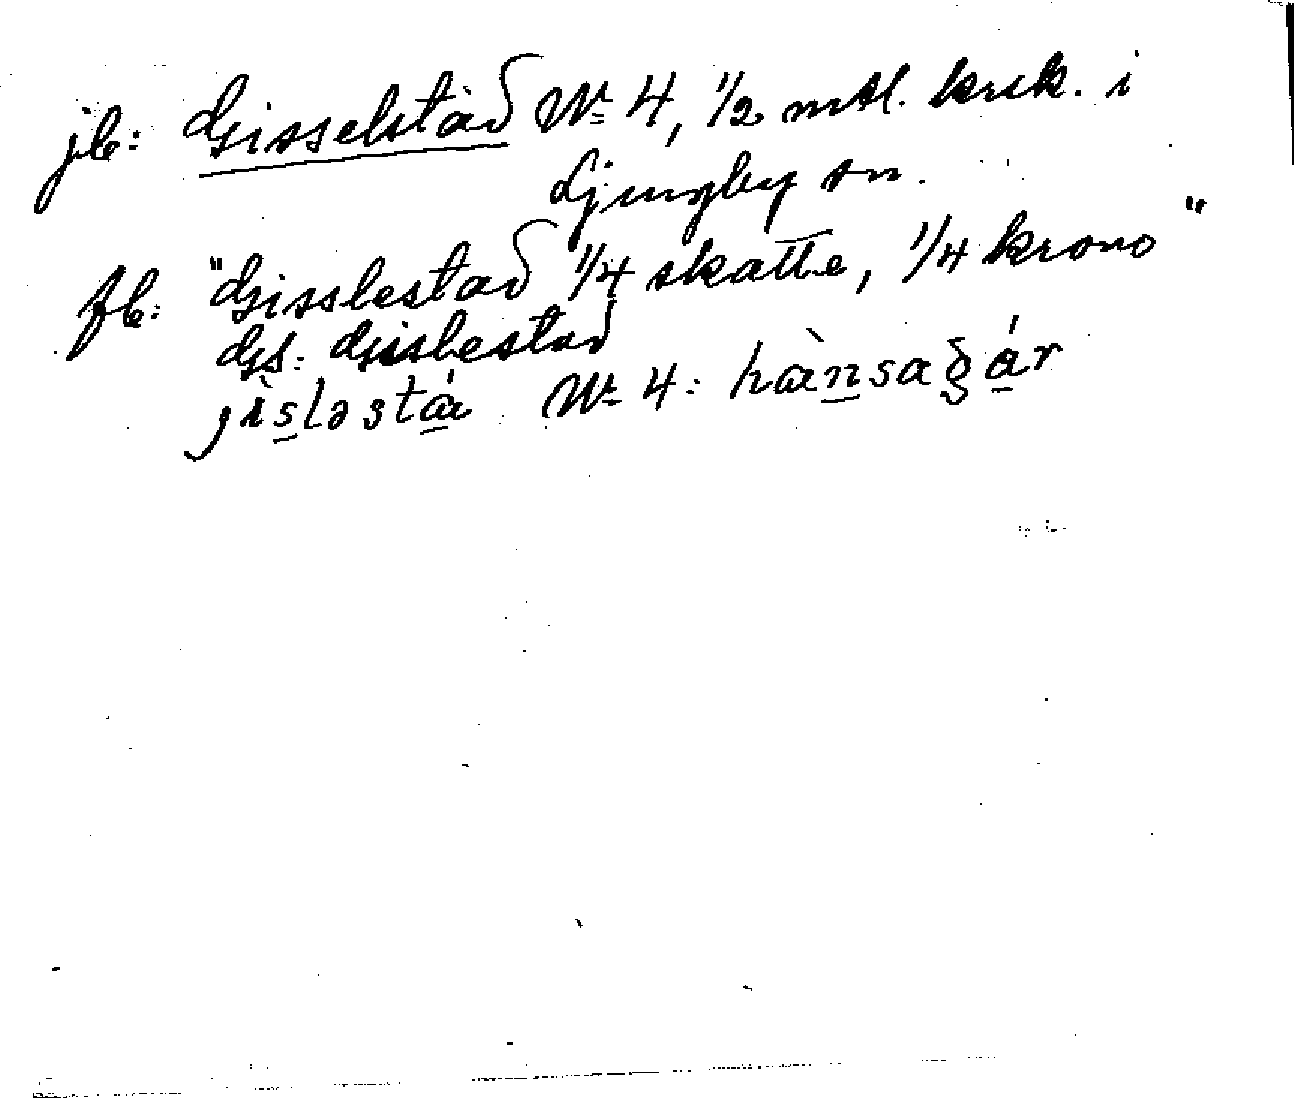 jb: Gisselstad No 4, 1/2 mtl. krsk. i
Ljungby sn.
fb: "Gisslestad 1/4 skatte, 1/4 krono"
Gs: Gislestad
jìsləstá No 4: hànsagár